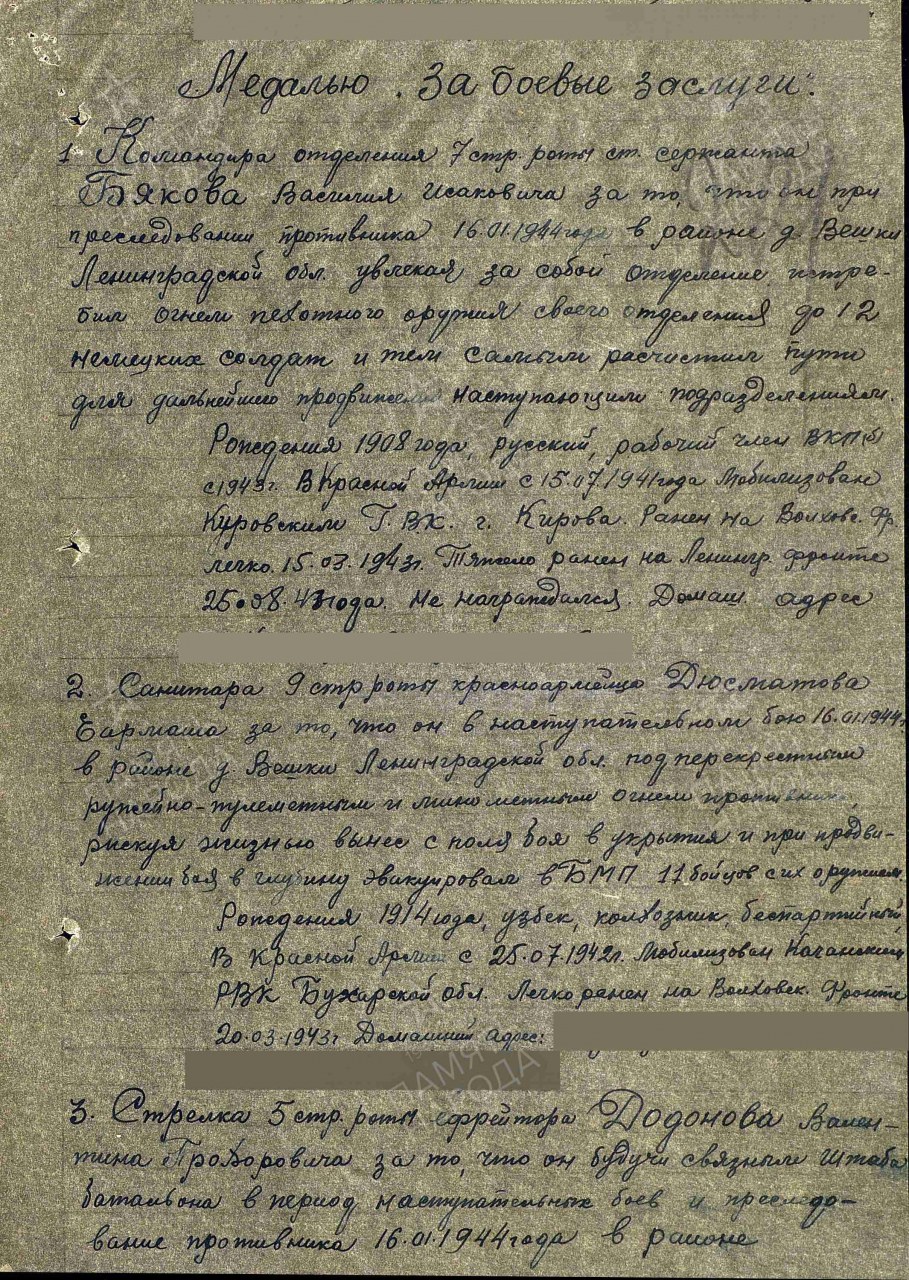 Медалью „За боевые заслуги".
1 Командира отделения 7 стр. роты ст. сержанта
Бякова Василия Исаковича за то, что он при
преследовании противника 16.01.1944 года в районе д. Вешки
Ленинградской обл. увлекая за собой отделение истре-
бил огнем пехотного оружия своего отделения до 12
немецких солдат и тем самым расчистил пути
для дальнейшего продвижения наступающим подразделениям.
Рождения 1908 года, русский, рабочий член ВКП(б)
с 1943 г. В Красной Армии с 15.07.1941 года Мобилизован
Г.В.К. г. Кирова. Ранен на Волховс. Фр.
легко 15.03.1943 г. Тяжело ранен на Ленингр. фронте
25.08.43 года. Не награждался. Домаш. адрес
2. Санитара 9 стр роты красноармейца Дюсматова
за то, что он в наступательном бою 16.01.1944 г
в районе д. Вешки Ленинградской обл. под перекрестным
ружейно-пулеметным и минометным огнем противника,
рискуя жизнью вынес с поля боя в укрытия и при продви-
жении боя в глубину эвакуировал в БМП 11 бойцов с их оружием.
Рождения 1914 года, узбек, колхозник, беспартийный
В Красной Армии с 25.07.1942 г. Мобилизован
РВК Бухарской обл. Легко ранен на Волховск. Фронте
20.03.1943 г Домашний адрес:
3. Стрелка 5 стр. роты ефрейтора Додонова Вален-
тина Прохоровича за то, что он будучи связным Штаба
батальона в период наступательных боев и преследо-
вание противника 16.01.1944 года в районе
ПАМЯТЬ
НАРОДА